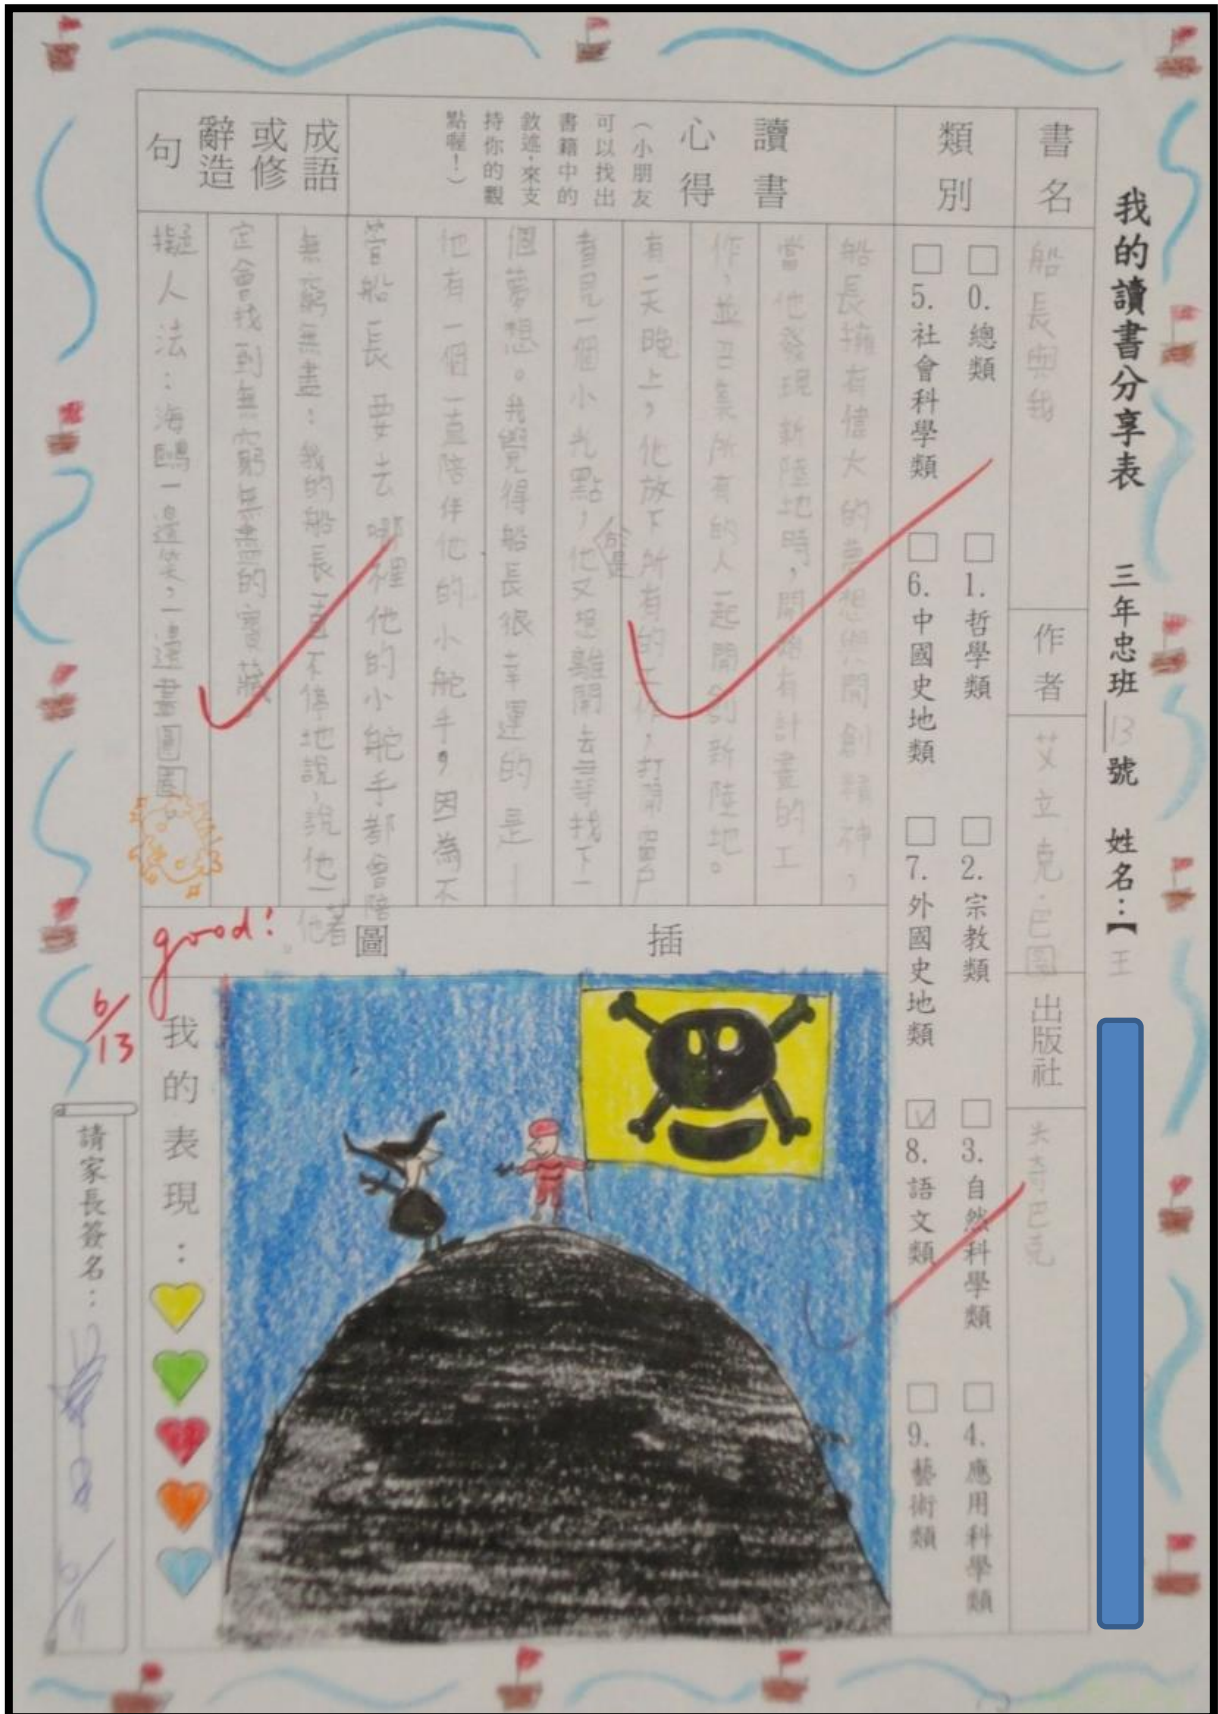 我的讀書分享表 三年忠班 13 號 姓名：【王
書名
船長與我
作者
艾立克．巴圖
出版社
米奇巴克
類別
□0. 總類
□1. 哲學類
□2. 宗教類
□3. 自然科學類
□4. 應用科學類
□5. 社會科學類
□6. 中國史地類
□7. 外國史地類
☑8. 語文類
□9. 藝術類
讀書
心得
（小朋友
可以找出
書籍中的
敘述，來支
持你的觀
點喔！）
船長擁有偉大的夢想與開創精神，
當他發現新陸地時，開始有計畫的工
作，並召集所有的人一起開創新陸地。
有一天晚上，他放下所有的工作，打開窗戶
看見一個小光點，於是他又想離開去尋找下一
個夢想。我覺得船長很幸運的是
他有一個一直陪伴他的小舵手，因為不
管船長要去哪裡他的小舵手都會陪著他。
成語
或修
辭造
句
無窮無盡：我的船長一直不停地說，說他一
定會找到無窮無盡的寶藏。
擬人法：海鷗一邊笑，一邊畫圓圈。
插圖
good!
6/13
我的表現：
請家長簽名：
6/11